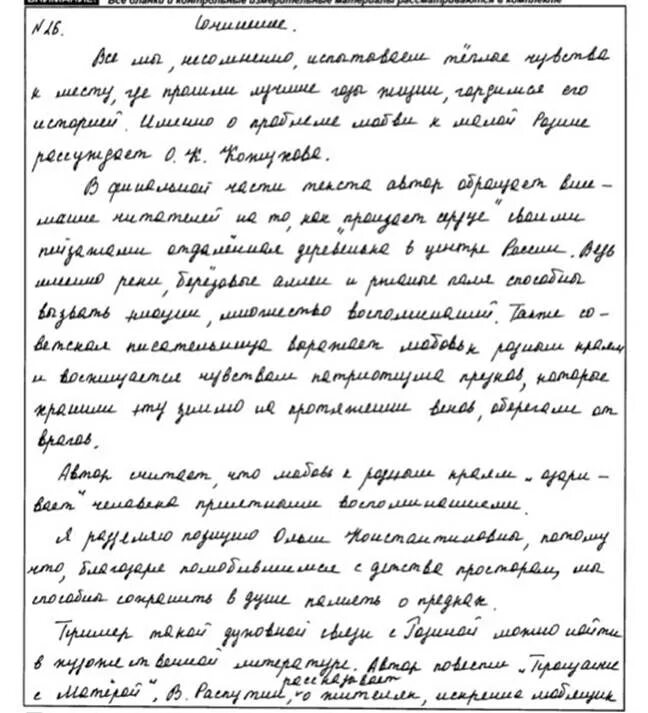 Все бланки и контрольные измерительные материалы рассматриваются в комплекте
N26. Сочинение.
Все мы, несомненно, испытываем тёплые чувства
к месту, где прошли лучшие годы жизни, гордимся его
историей. Именно о проблеме любви к малой Родине
рассуждает О. К. Кожухова.
В финальной части текста автор обращает вни-
мание читателей на то, как "пронзает сердце" своими
пейзажами отдалённая деревенька в центре России. Ведь
именно реки, берёзовые аллеи и ржаные поля способны
вызвать эмоции, множество воспоминаний. Также со-
ветская писательница выражает любовь к родным краям
и восхищается чувством патриотизма предков, которые
хранили эту землю на протяжении веков, оберегали от
врагов.
Автор считает, что любовь к родным краям "озари-
вает" человека приятными воспоминаниями.
Я разделяю позицию Ольги Константиновны, потому
что, благодаря полюбившимся с детства просторам, мы
способны сохранить в душе память о предках.
Пример такой духовной связи с Родиной можно найти
в художественной литературе. Автор повести "Прощание
с Матёрой", В. Распутин, рассказывает о жителях, искренне любящих